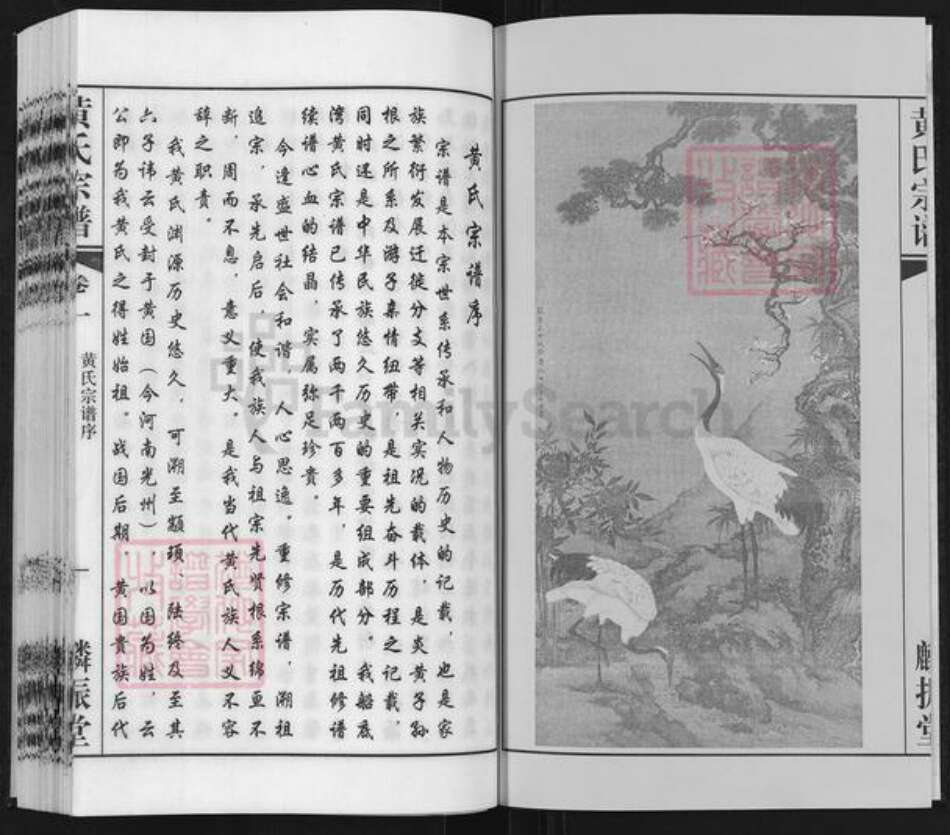 黄氏宗谱序
宗谱是本宗世系传承和人物历史的记载,也是家
族繁衍发展迁徙分支等相关实况的载体,是炎黄子孙
根之所系及游子亲情纽带,是祖先奋斗历程之记载,
同时还是中华民族悠久历史的重要组成部分。我船底
湾黄氏宗谱已传承了两千两百多年,是历代先祖修谱
续谱心血的结晶,实属弥足珍贵。
今逢盛世社会和谐,人心思逸,重修宗谱,溯祖
追宗,承先启后,使我族人与祖宗先贤根系绵亘不
断,周而不息,意义重大。是我当代黄氏族人义不容
辞之职责。
我黄氏渊源历史悠久,可溯至颛顼,陆终及至其
六子讳云受封于黄国(今河南光州),以国为姓,云
公即为我黄氏之得姓始祖。战国后期,黄国贵族后代
黄氏宗谱 卷一
黄氏宗谱序
一
麟振堂
黄氏宗谱
麟振堂
FamilySearch